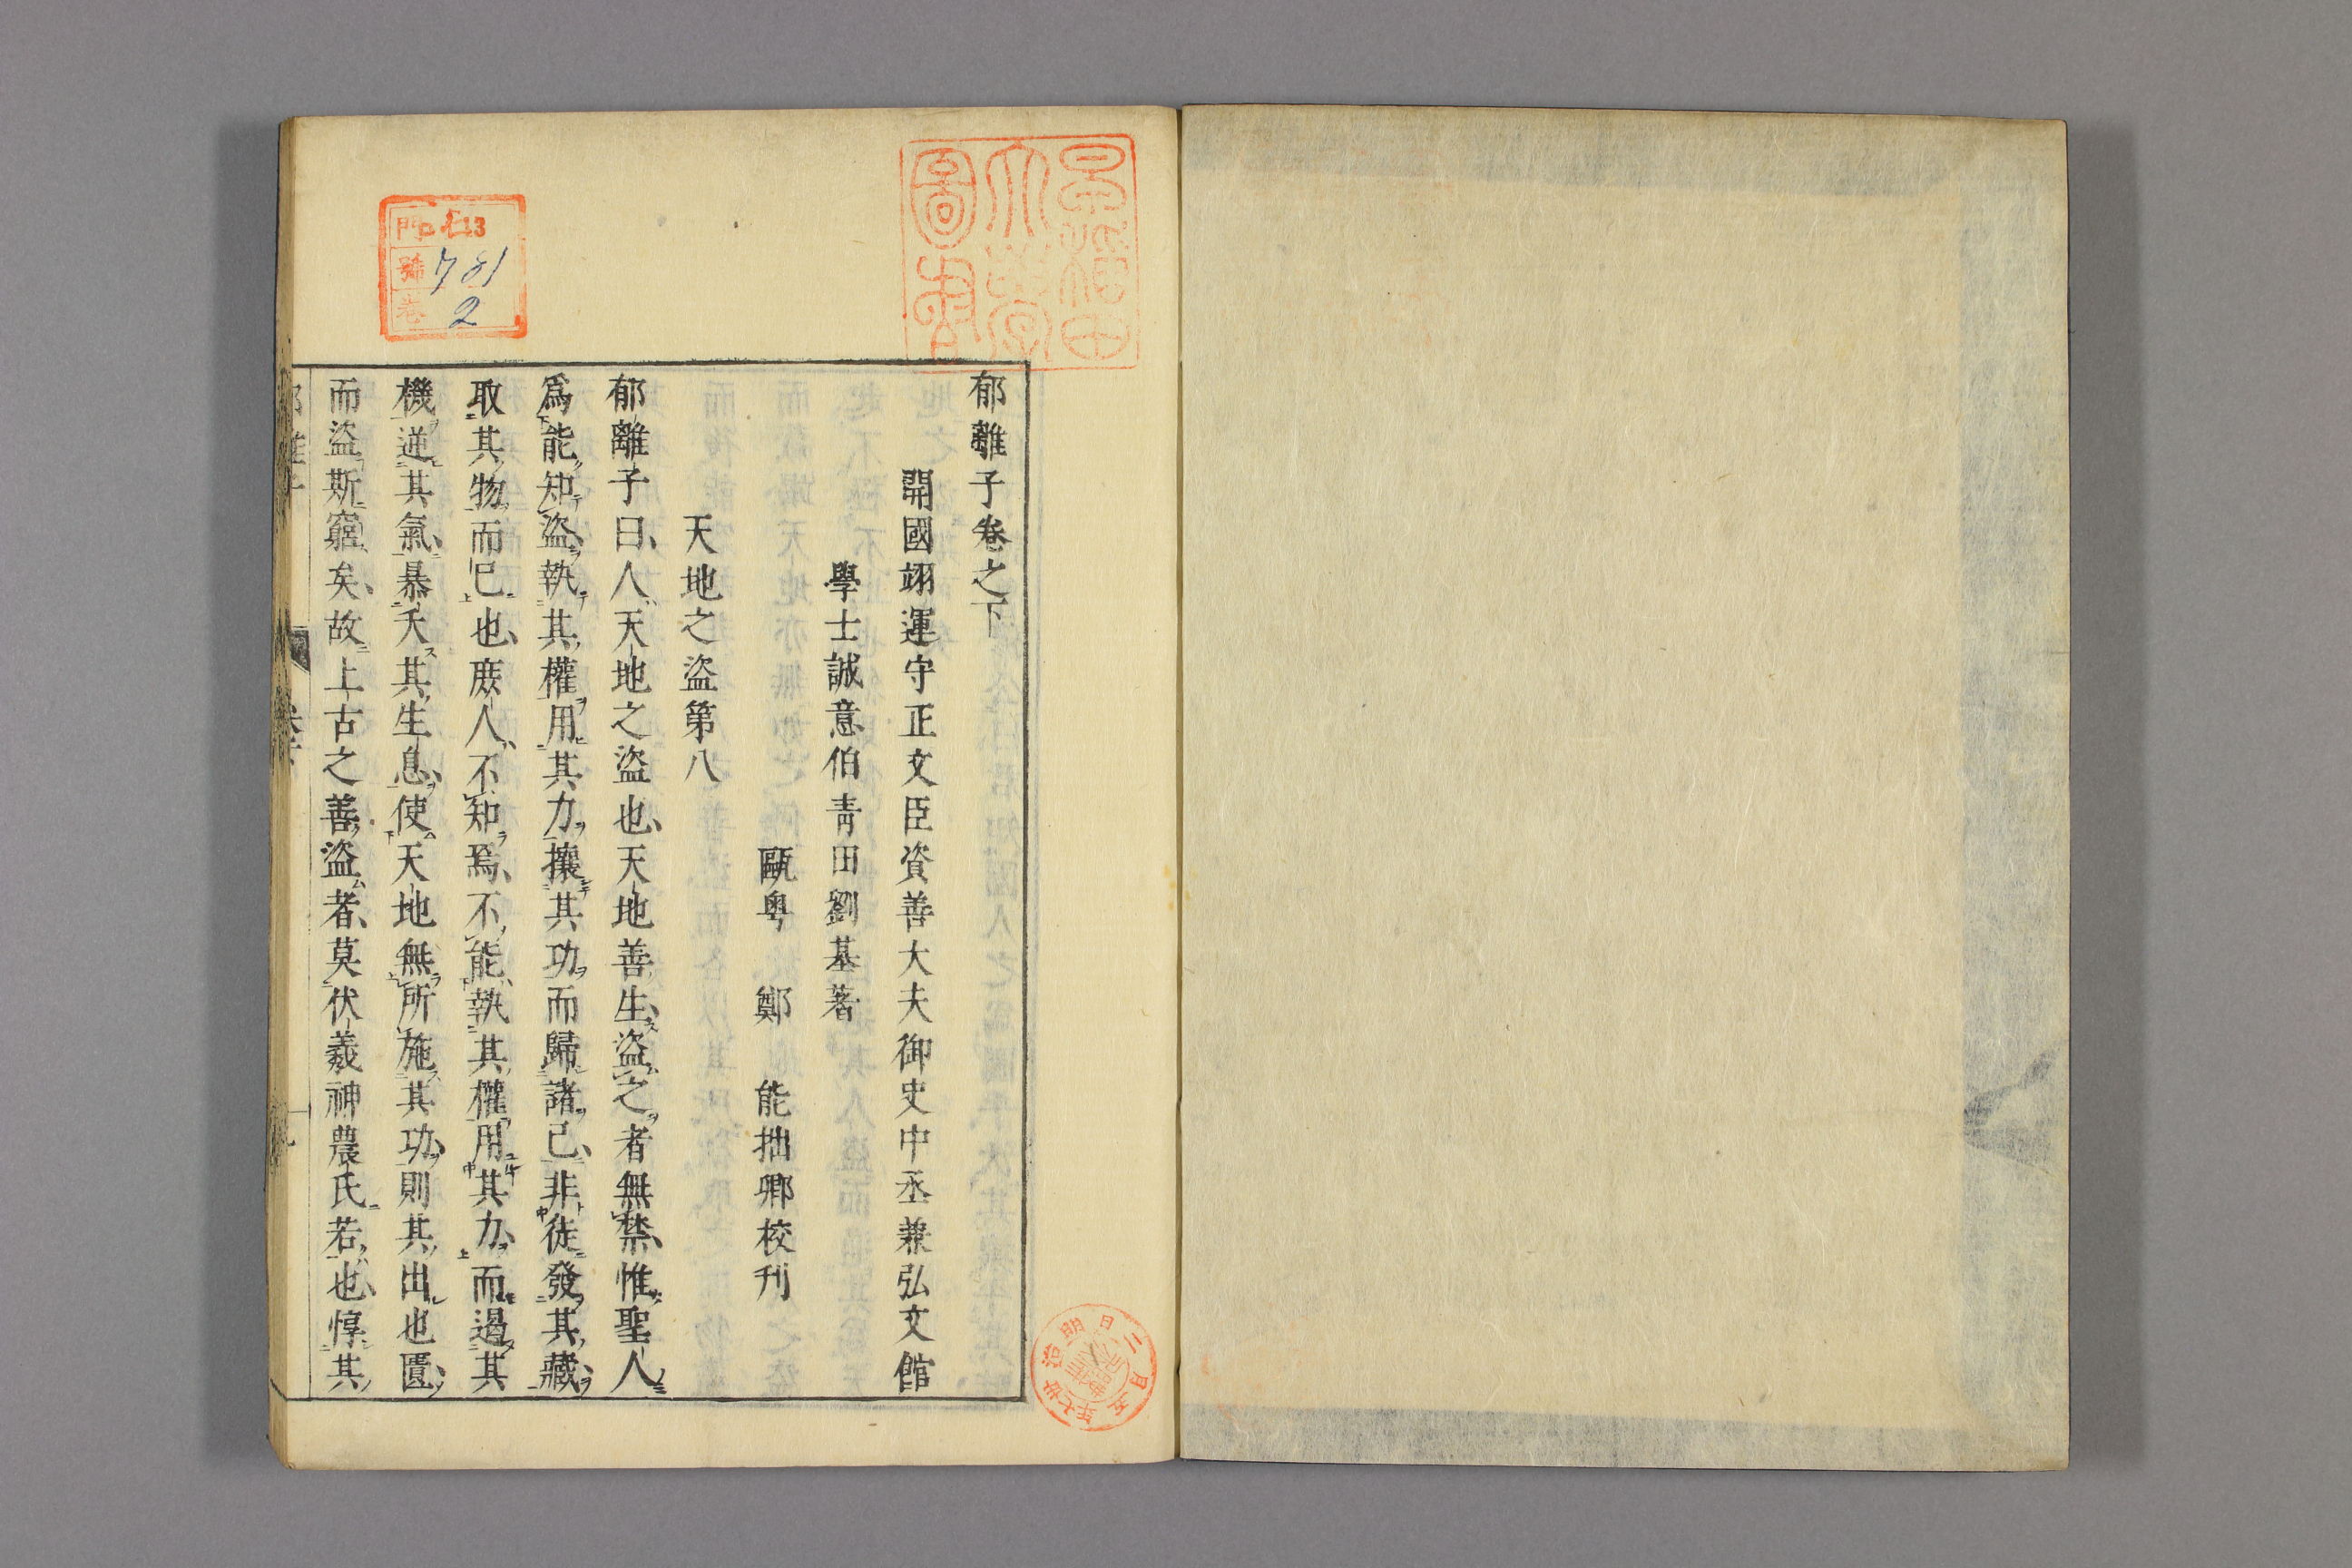 郁離子卷之下
開國翊運守正文臣資善大夫御史中丞兼弘文館
學士誠意伯青田劉基著
甌粤 鄭 能拙卿校刊
天地之盜第八
郁離子曰人天地之盜也天地善生盜之者無禁惟聖人
爲能知盜執其權用其力攘其功而歸諸己非徒發其藏
取其物而已也庶人不知焉不能執其權用其力而遏其
機逆其氣暴夭其生息使天地無所施其功則其出也匱
而盜斯窮矣故上古之善盜者莫伏羲神農氏若也惇其
門 13
號 781
卷 2
早稲田大學圖書
明治卅七年二月五日